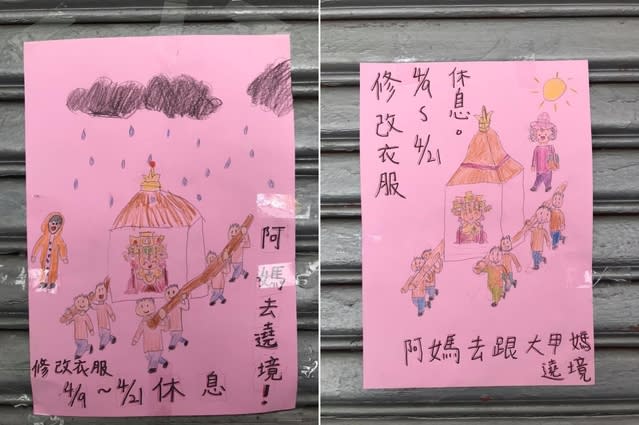 阿媽去遶境!
修改衣服
4/9～4/21 休息
休息。
4/9～4/21
修改衣服
阿媽去跟大甲媽
遶境